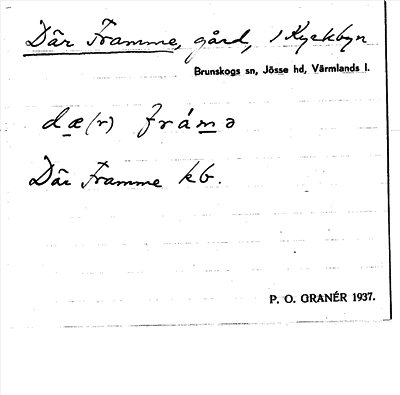 Där Framme, gård, i Kyrkbyn
Brunskogs sn, Jösse hd, Värmlands l.
dæ(r) frámə
Där Framme kb.
P. O. GRANÉR 1937.